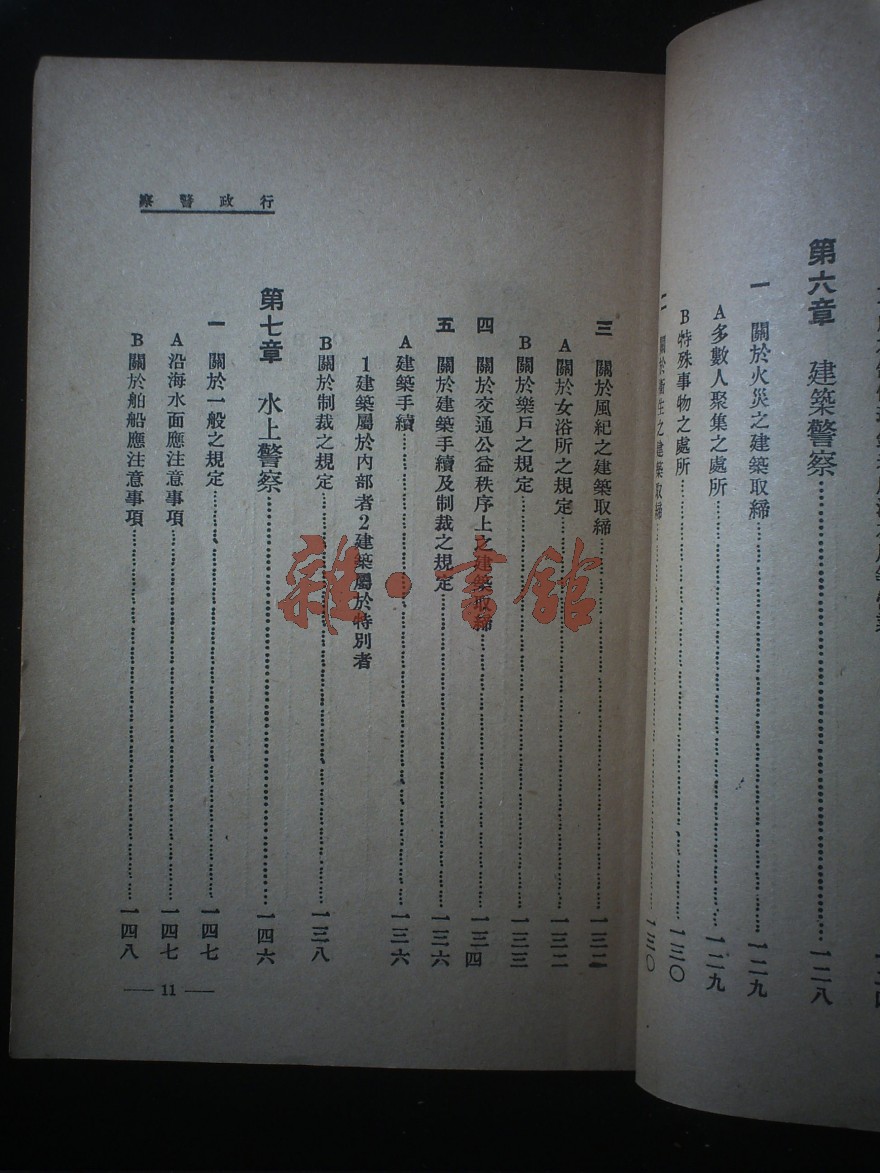 第六章　建築警察……一二八
一　關於火災之建築取締……一二九
A 多數人聚集之處所……一二九
B 特殊事物之處所……一三〇
二　關於衛生之建築取締……一三〇
行政警察
三　關於風紀之建築取締……一三二
A 關於女浴所之規定……一三二
B 關於樂戶之規定……一三三
四　關於交通公益秩序上之建築取締……一三四
五　關於建築手續及制裁之規定……一三六
A 建築手續……一三六
1 建築屬於內部者 2 建築屬於特別者
B 關於制裁之規定……一三八
第七章　水上警察……一四六
一　關於一般之規定……一四七
A 沿海水面應注意事項……一四七
B 關於舶船應注意事項……一四八
— 11 —
雜·書館